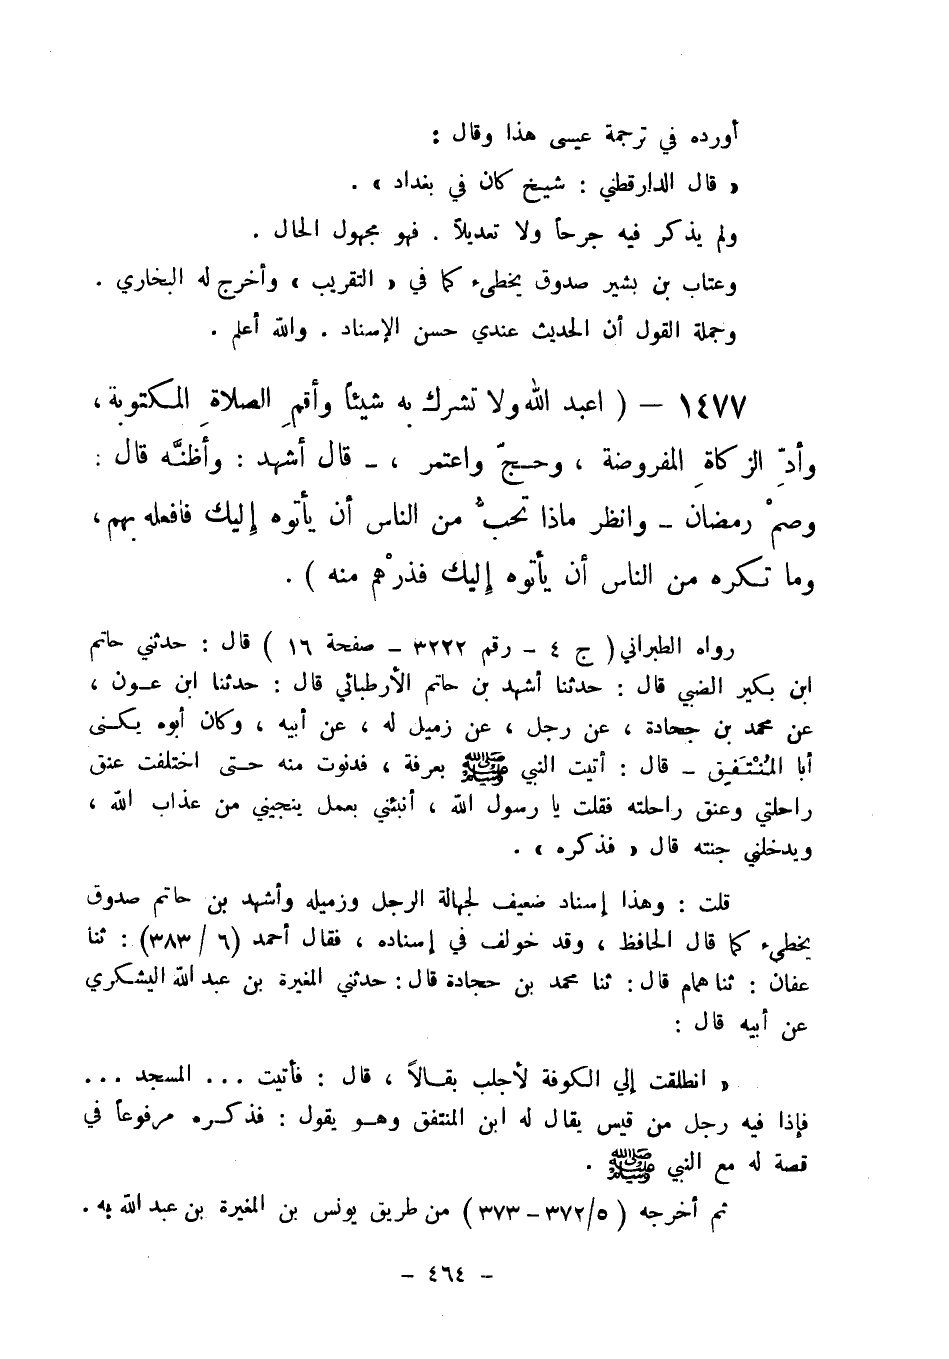 أورده في ترجمة عيسى هذا وقال :
« قال الدارقطني : شيخ كان في بغداد » .
ولم يذكر فيه جرحاً ولا تعديلاً . فهو مجهول الحال .
وعتاب بن بشير صدوق يخطىء كما في « التقريب » وأخرج له البخاري .
وجملة القول أن الحديث عندي حسن الإسناد . والله أعلم .
١٤٧٧ – ( اعبد الله ولا تشرك به شيئاً وأقمِ الصلاةَ المكتوبة ،
وأدِّ الزكاةَ المفروضة ، وحجّ واعتمر ، – قال أشهد : وأظنَّه قال :
وصمْ رمضان – وانظر ماذا تحبُّ من الناس أن يأتوه إليك فافعله بهم ،
وما تكره من الناس أن يأتوه إليك فذرْهم منه ) .
رواه الطبراني ( ج ٤ – رقم ٣٢٢٢ – صفحة ١٦ ) قال : حدثني حاتم
ابن بكير الضبي قال : حدثنا أشهد بن حاتم الأرطبائي قال : حدثنا ابن عون ،
عن محمد بن جحادة ، عن رجل ، عن زميل له ، عن أبيه ، وكان أبوه يكنى
أبا المُنْتَفِق – قال : أتيت النبي ﷺ بعرفة ، فدنوت منه حتى اختلفت عنق
راحلتي وعنق راحلته فقلت يا رسول الله ، أنبئني بعمل ينجيني من عذاب الله ،
ويدخلني جنته قال « فذكره » .
قلت : وهذا إسناد ضعيف لجهالة الرجل وزميله وأشهد بن حاتم صدوق
يخطىء كما قال الحافظ ، وقد خولف في إسناده ، فقال أحمد (٦ / ٣٨٣) : ثنا
عفان : ثنا همام قال : ثنا محمد بن حجادة قال : حدثني المغيرة بن عبد الله اليشكري
عن أبيه قال :
« انطلقت إلي الكوفة لأجلب بقالاً ، قال : فأتيت ... المسجد ...
فإذا فيه رجل من قيس يقال له ابن المنتفق وهو يقول : فذكره مرفوعاً في
قصة له مع النبي ﷺ .
ثم أخرجه ( ٥/٣٧٢ – ٣٧٣ ) من طريق يونس بن المغيرة بن عبد الله به .
– ٤٦٤ –